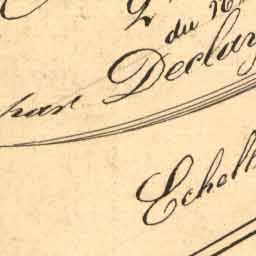 du
par Declar
Echell